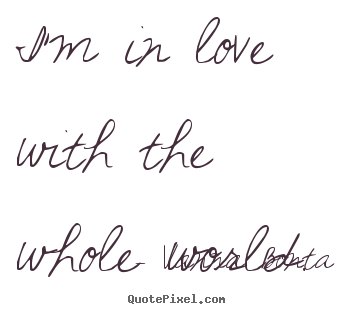 I'm in love
with the
whole world.
Vanna Bonta
QuotePixel.com